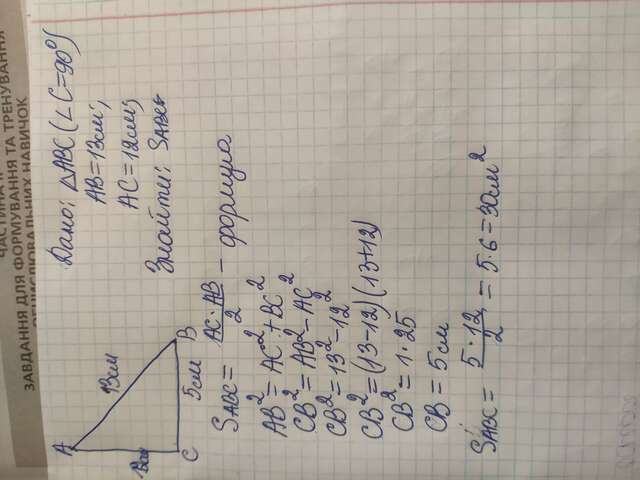 ЧАСТИНА
ЗАВДАННЯ ДЛЯ ФОРМУВАННЯ ТА ТРЕНУВАННЯ
НАВИЧОК
Дано: △ABC (∠C=90°)
AB=13см;
AC=12см;
Знайти: S_ABC
A
13см
C
5см
B
S_ABC = AC·AB/2 - формула
AB²=AC²+BC²
CB²=AB²-AC²
CB²=13²-12²
CB²=(13-12)(13+12)
CB²=1·25
CB=5см
S_ABC = 5·12/2 = 5·6=30см²